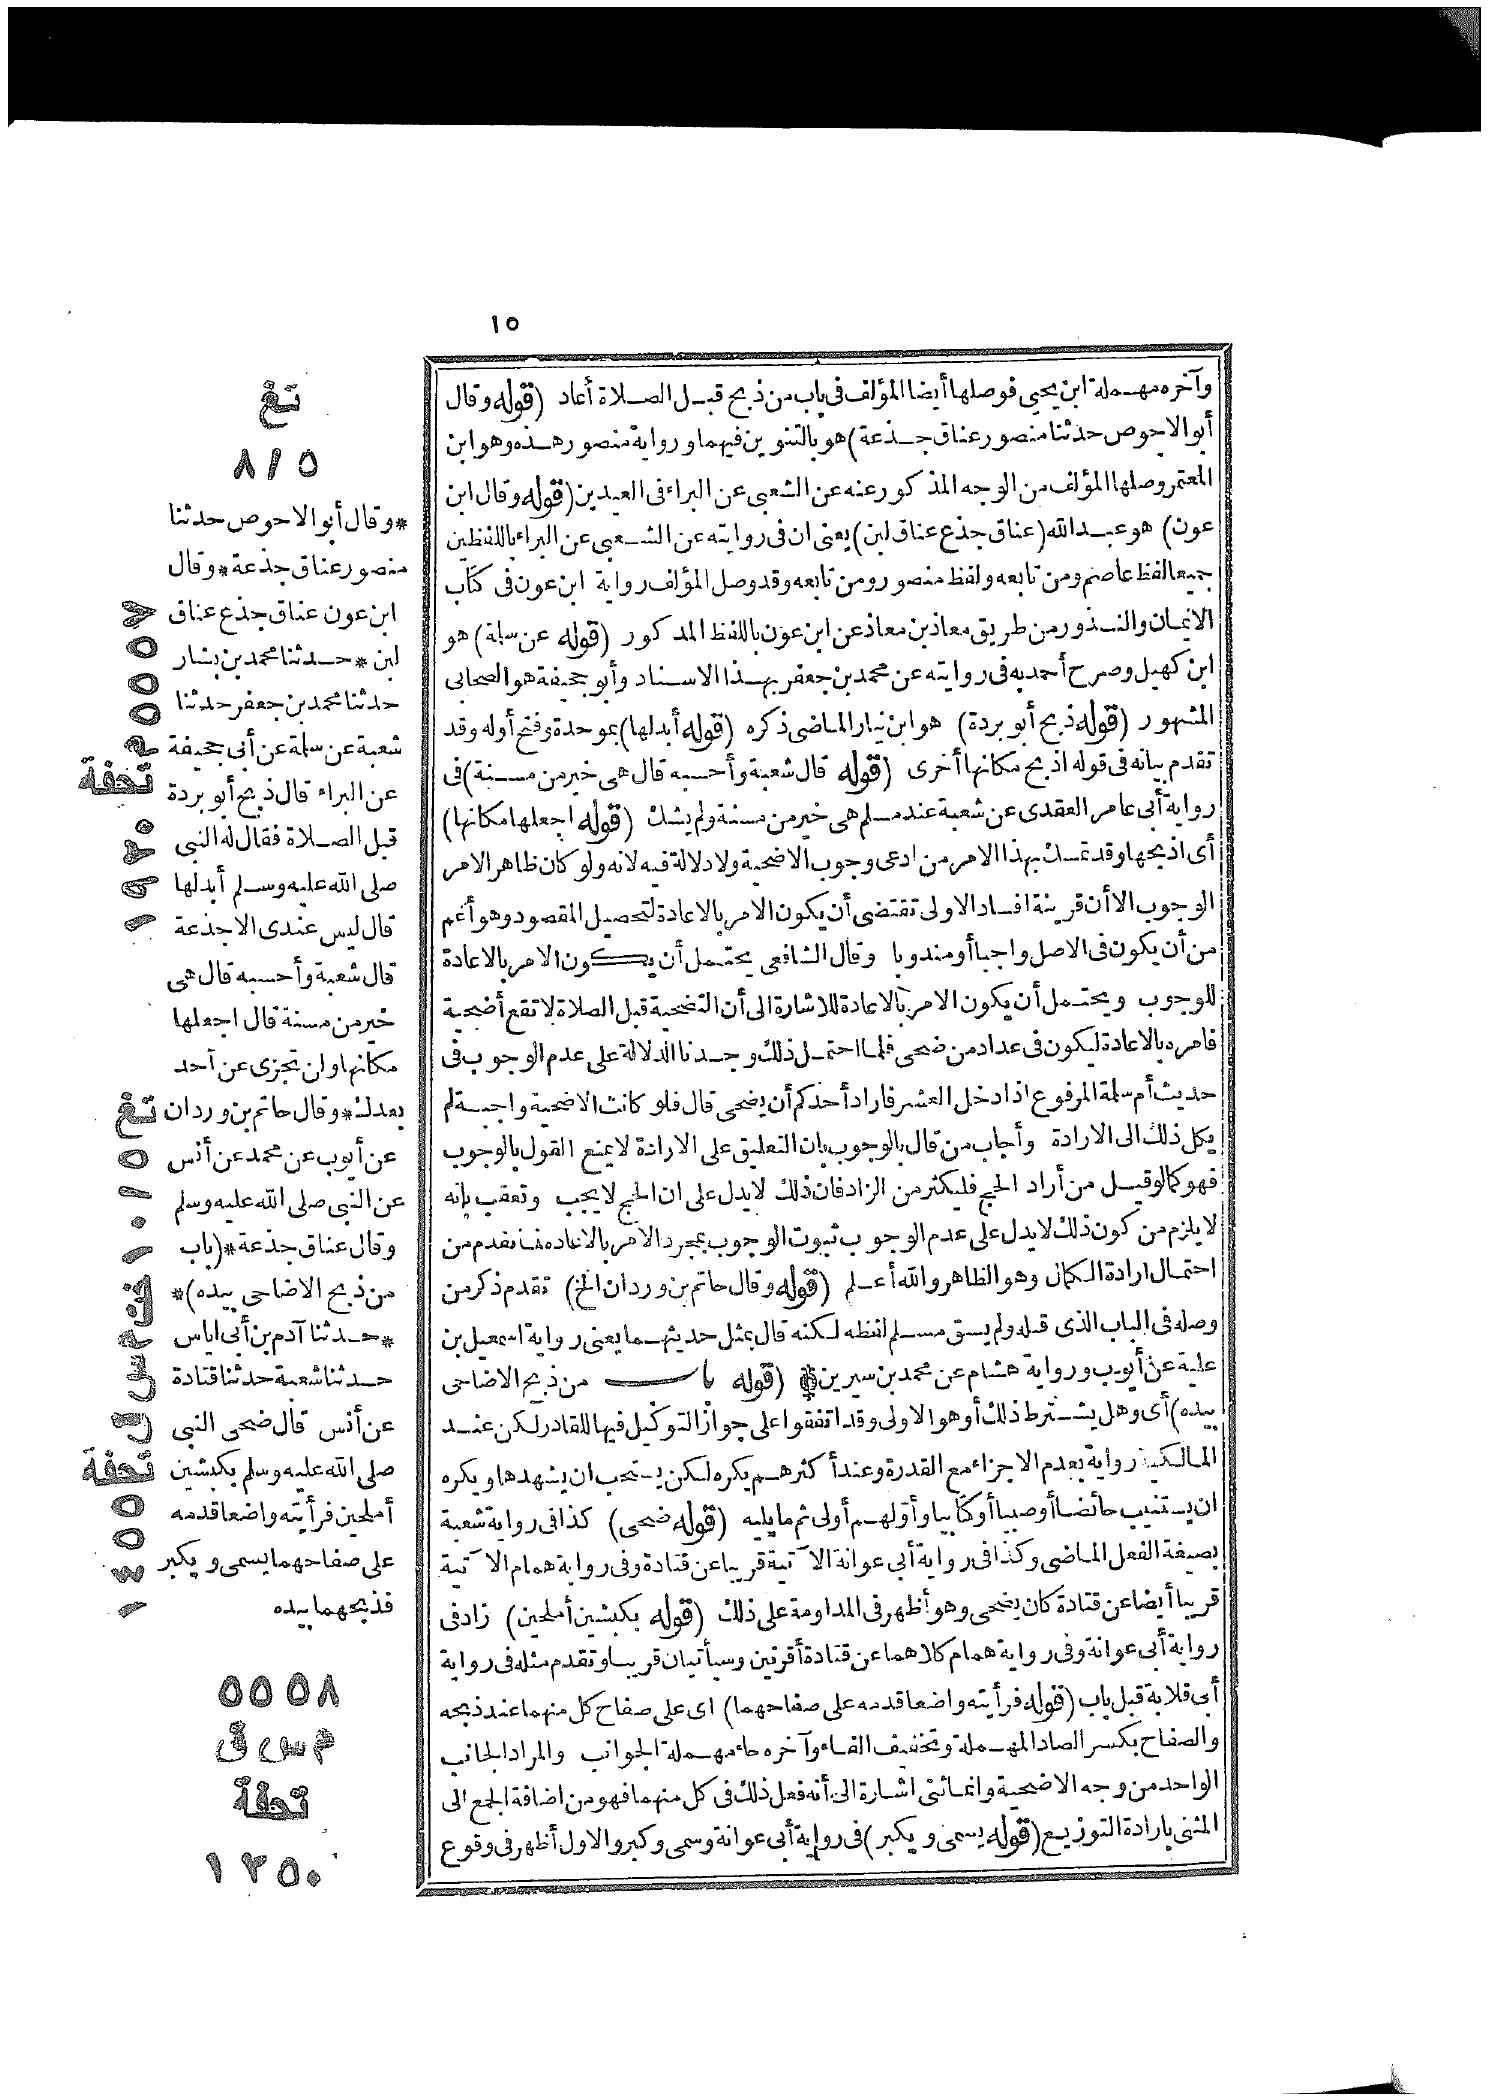 ١٥
وآخره مهملة ابن يحيى فوصلها أيضا المؤلف فى باب من ذبح قبل الصلاة أعاد (قوله وقال
أبو الاحوص حدثنا منصور عناق جذعة) هو بالتنوين فيهما ورواية منصور هذه وهو ابن
المعتمر وصلها المؤلف من الوجه المذكور عنه عن الشعبى عن البراء فى العيدين (قوله وقال ابن
عون) هو عبد الله (عناق جذع عناق لبن) يعنى ان فى روايته عن الشعبى عن البراء باللفظين
جميعا لفظ عاصم ومن تابعه ولفظ منصور ومن تابعه وقد وصل المؤلف رواية ابن عون فى كتاب
الايمان والنذور من طريق معاذ بن معاذ عن ابن عون باللفظ المذكور (قوله عن سلمة) هو
ابن كهيل وصرح أحمد به فى روايته عن محمد بن جعفر بهذا الاسناد وأبو جحيفة هو الصحابى
المشهور (قوله ذبح أبو بردة) هو ابن نيار الماضى ذكره (قوله أبدلها) بموحدة وفتح أوله وقد
تقدم بيانه فى قوله اذبح مكانها أخرى (قوله قال شعبة وأحسبه قال هى خير من مسنة) فى
رواية أبى عامر العقدى عن شعبة عند مسلم هى خير من مسنة ولم يشك (قوله اجعلها مكانها)
أى اذبحها وقد تمسك بهذا الامر من ادعى وجوب الاضحية ولا دلالة فيه لانه ولو كان ظاهر الامر
الوجوب الا أن قرينة افساد الاولى تقتضى أن يكون الامر بالاعادة لتحصيل المقصود وهو أعم
من أن يكون فى الاصل واجبا أو مندوبا وقال الشافعى يحتمل أن يكون الامر بالاعادة
للوجوب ويحتمل أن يكون الامر بالاعادة للاشارة الى أن التضحية قبل الصلاة لا تقع أضحية
فامره بالاعادة ليكون فى عداد من ضحى فلما احتمل ذلك وجدنا الدلالة على عدم الوجوب فى
حديث أم سلمة المرفوع اذا دخل العشر فاراد أحدكم أن يضحى قال فلو كانت الاضحية واجبة لم
يكل ذلك الى الارادة وأجاب من قال بالوجوب بان التعليق على الارادة لا يمنع القول بالوجوب
فهو كما لو قيل من أراد الحج فليكثر من الزاد فان ذلك لا يدل على ان الحج لا يجب وتعقب بانه
لا يلزم من كون ذلك لا يدل على عدم الوجوب ثبوت الوجوب بمجرد الامر بالاعادة لما تقدم من
احتمال ارادة الكمال وهو الظاهر والله أعلم (قوله وقال حاتم بن وردان الخ) تقدم ذكر من
وصله فى الباب الذى قبله ولم يسق مسلم لفظه لكنه قال بمثل حديثهما يعنى رواية اسمعيل بن
علية عن أيوب ورواية هشام عن محمد بن سيرين (قوله باب من ذبح الاضاحى
بيده) أى وهل يشترط ذلك أو هو الاولى وقد اتفقوا على جواز التوكيل فيها للقادر لكن عند
المالكية رواية بعدم الاجزاء مع القدرة وعند أكثرهم يكره لكن يستحب ان يشهدها ويكره
ان يستنيب حائضا أو صبيا أو كتابيا وأولهم أولى ثم ما يليه (قوله ضحى) كذا فى رواية شعبة
بصيغة الفعل الماضى وكذا فى رواية أبى عوانة الآتية قريبا عن قتادة وفى رواية همام الآتية
قريبا أيضا عن قتادة كان يضحى وهو أظهر فى المداومة على ذلك (قوله بكبشين أملحين) زاد فى
رواية أبى عوانة وفى رواية همام كلاهما عن قتادة أقرنين وسيأتيان قريبا وتقدم مثله فى رواية
أبى قلابة قبل باب (قوله فرأيته واضعا قدمه على صفاحهما) اى على صفاح كل منهما عند ذبحه
والصفاح بكسر الصاد المهملة وتخفيف الفاء وآخره حاء مهملة الجوانب والمراد الجانب
الواحد من وجه الاضحية وانما ثنى اشارة الى أنه فعل ذلك فى كل منهما فهو من اضافة الجمع الى
المثنى بارادة التوزيع (قوله يسمى ويكبر) فى رواية أبى عوانة وسمى وكبر والاول أظهر فى وقوع
تغ
٨/٥
*وقال أبو الاحوص حدثنا
منصور عناق جذعة*وقال
ابن عون عناق جذع عناق
لبن*حدثنا محمد بن بشار
حدثنا محمد بن جعفر حدثنا
شعبة عن سلمة عن أبى جحيفة
عن البراء قال ذبح أبو بردة
قبل الصلاة فقال له النبى
صلى الله عليه وسلم أبدلها
قال ليس عندى الا جذعة
قال شعبة وأحسبه قال هى
خير من مسنة قال اجعلها
مكانها ولن تجزى عن أحد
بعدك*وقال حاتم بن وردان
عن أيوب عن محمد عن أنس
عن النبى صلى الله عليه وسلم
وقال عناق جذعة*(باب
من ذبح الاضاحى بيده)*
*حدثنا آدم بن أبى اياس
حدثنا شعبة حدثنا قتادة
عن أنس قال ضحى النبى
صلى الله عليه وسلم بكبشين
أملحين فرأيته واضعا قدمه
على صفاحهما يسمى ويكبر
فذبحهما بيده
٥٥٥٨
م س ق
تحفة
١٢٥٠
تحفة
تغ
تحفة